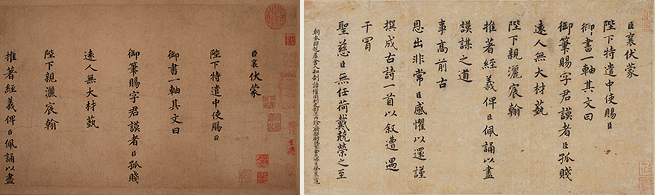 臣襄伏蒙
陛下特遣中使賜臣
御書一軸其文曰
御筆賜字君謨者臣孤賤
遠人無大材藝
陛下親灑宸翰
推著經義俾臣佩誦以盡
臣襄伏蒙
陛下特遣中使賜臣
御書一軸其文曰
御筆賜字君謨者臣孤賤
遠人無大材藝
陛下親灑宸翰
推著經義俾臣佩誦以盡
謨謀之道
事高前古
恩出非常臣感懼以還謹
撰成古詩一首以敘遭遇
干冒
聖慈臣無任荷戴兢榮之至
朝奉郎起居舍人知制誥